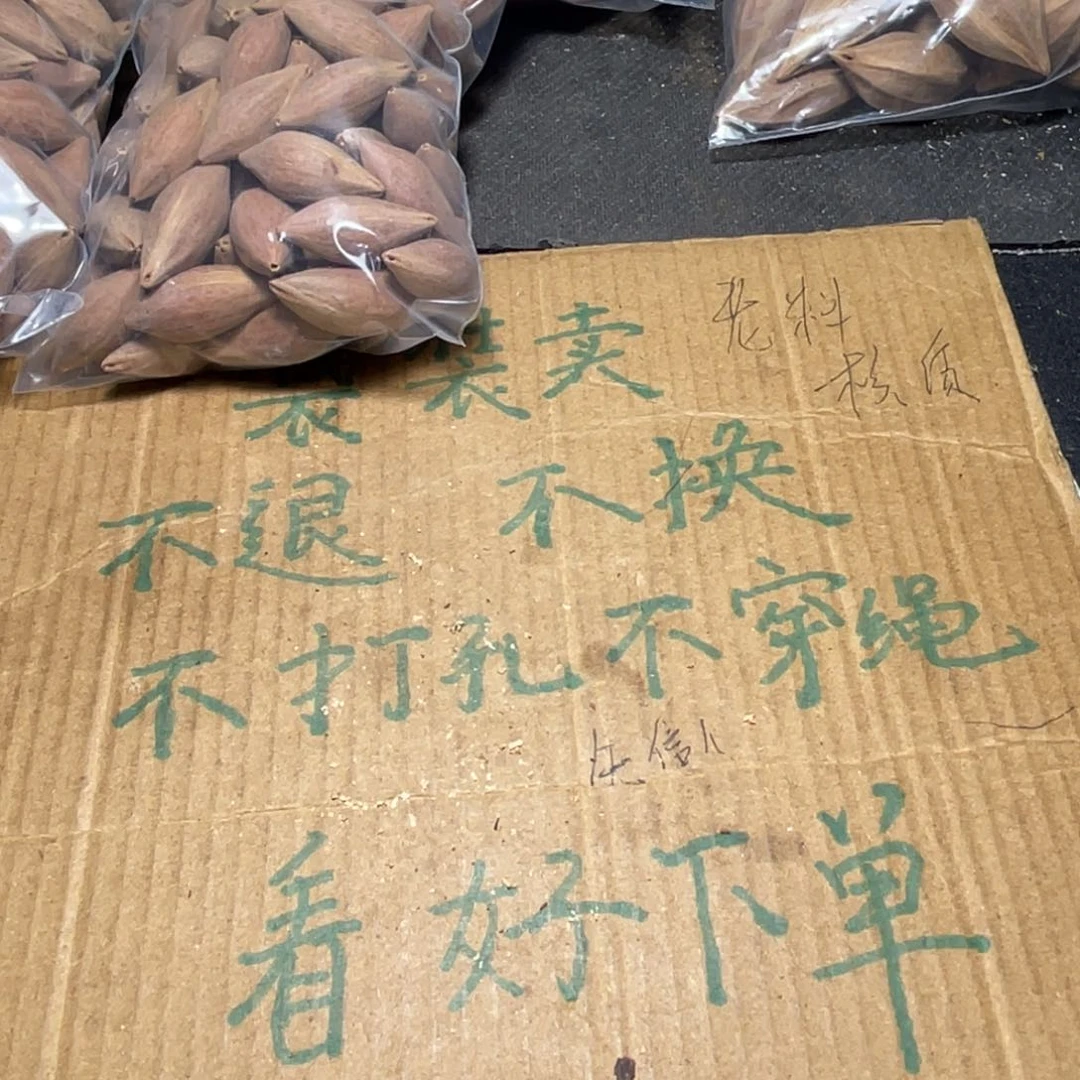 袋装卖
老料
核质
不退 不换
不打孔不穿绳
看好下单